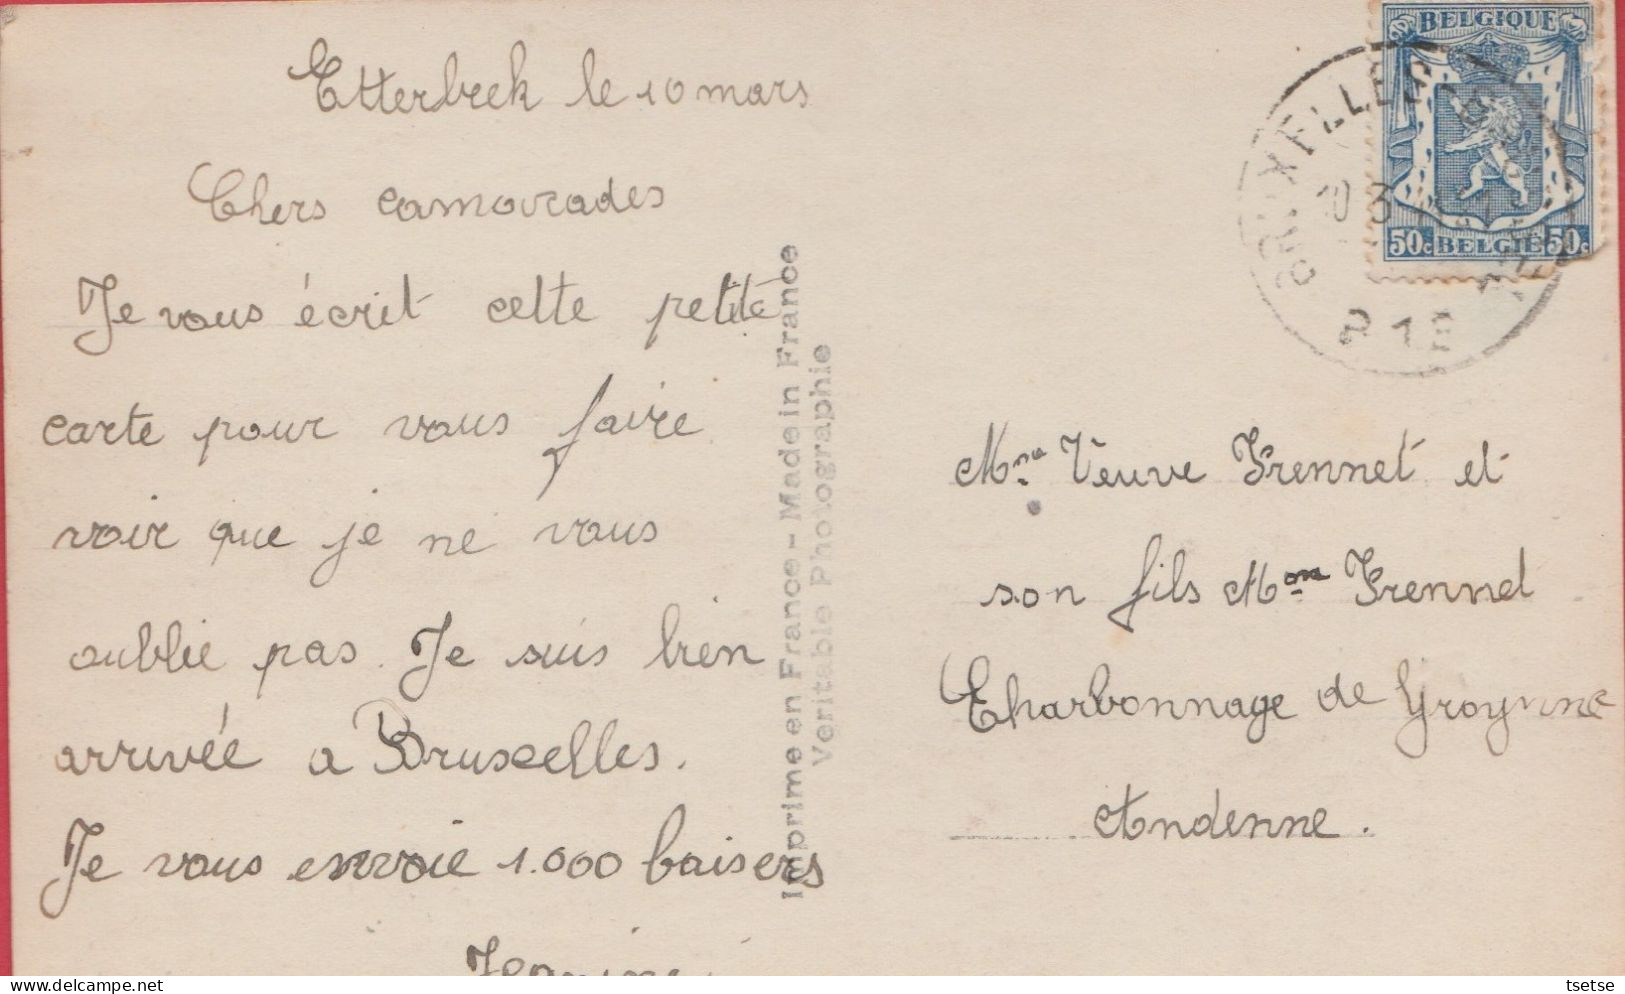 Etterbeek le 10 mars
Chers camarades
Je vous écrit cette petite
carte pour vous faire
voir que je ne vous
oublie pas. Je suis bien
arrivée a Bruxelles.
Je vous envoie 1.000 baisers
Jeanine
Imprime en France - Made in France
Veritable Photographie
BELGIQUE
50c BELGIË 50c
BRUXELLES
10 3
Veuve Frennet et
son fils Frennet
Charbonnage de Groynne
Andenne.
tsetse